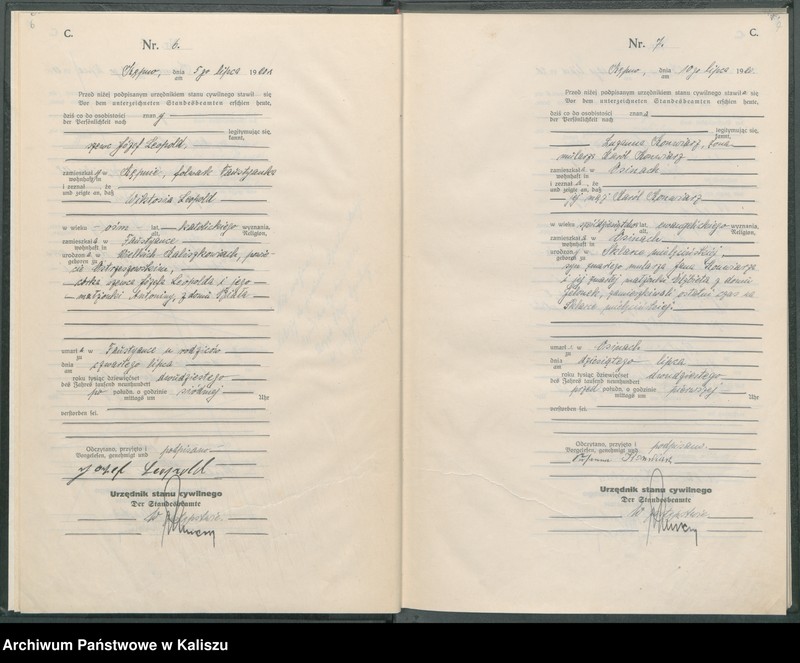 C.
Nr. 6.
dnia 5go lipca 1920
am
Przed niżej podpisanym urzędnikiem stanu cywilnego stawił się
Vor dem unterzeichneten Standesbeamten erschien heute,
dziś co do osobistości znany
der Persönlichkeit nach
legitymując się,
kannt,
szewc Józef Leopold,
zamieszkały w folwark Faustyanka
wohnhaft in
i zeznał, że
und zeigte an, daß
Wiktoria Leopold
w wieku ośm lat, katolickiego wyznania,
alt, Religion,
zamieszkała w Faustyance
wohnhaft in
urodzona w Wielkich powie-
geboren zu
cie Ostrzeszowskim,
córka szewca Józefa Leopolda i jego
małżonki Antoniny, z domu
umarła w Faustyance u rodziców
zu
dnia czwartego lipca
am
roku tysiąc dziewięćset dwudziestego
des Jahres tausend neunhundert
po połudn. o godzinie siódmej
mittags um Uhr
verstorben sei.
Odczytano, przyjęto i podpisano
Vorgelesen, genehmigt und
Józef Leopold
Urzędnik stanu cywilnego
Der Standesbeamte
W zastępstwie
C.
Nr. 7.
dnia 10go lipca 1920
am
Przed niżej podpisanym urzędnikiem stanu cywilnego stawiła się
Vor dem unterzeichneten Standesbeamten erschien heute,
dziś co do osobistości znana
der Persönlichkeit nach
legitymując się,
kannt,
Zuzanna żona
mularza Karol
zamieszkała w Osinach
wohnhaft in
i zeznała, że
und zeigte an, daß
jej mąż Karol
w wieku lat, ewangelickiego wyznania,
alt, Religion,
zamieszkały w Osinach
wohnhaft in
urodzony w Sklarce
geboren zu
syn zmarłego mularza
i jej zmarłej małżonki Elżbieta z domu
zamieszkiwali ostatni czas na
Sklarce
umarł w Osinach
zu
dnia dziesiątego lipca
am
roku tysiąc dziewięćset dwudziestego
des Jahres tausend neunhundert
przed połudn. o godzinie pierwszej
mittags um Uhr
verstorben sei.
Odczytano, przyjęto i podpisano
Vorgelesen, genehmigt und
Urzędnik stanu cywilnego
Der Standesbeamte
W zastępstwie
Archiwum Państwowe w Kaliszu